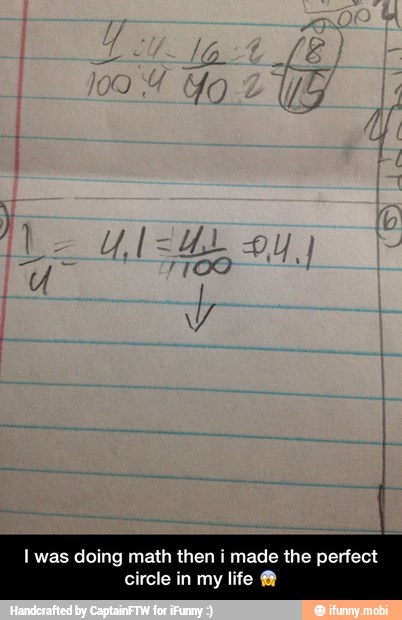 4/100 ÷4/÷4 = 16/40 ÷2/÷2 = 18/15
6
1/4 = 4.1 = 4.1/100 = 0.4.1
I was doing math then i made the perfect
circle in my life 😱
Handcrafted by CaptainFTW for iFunny :)
ifunny.mobi